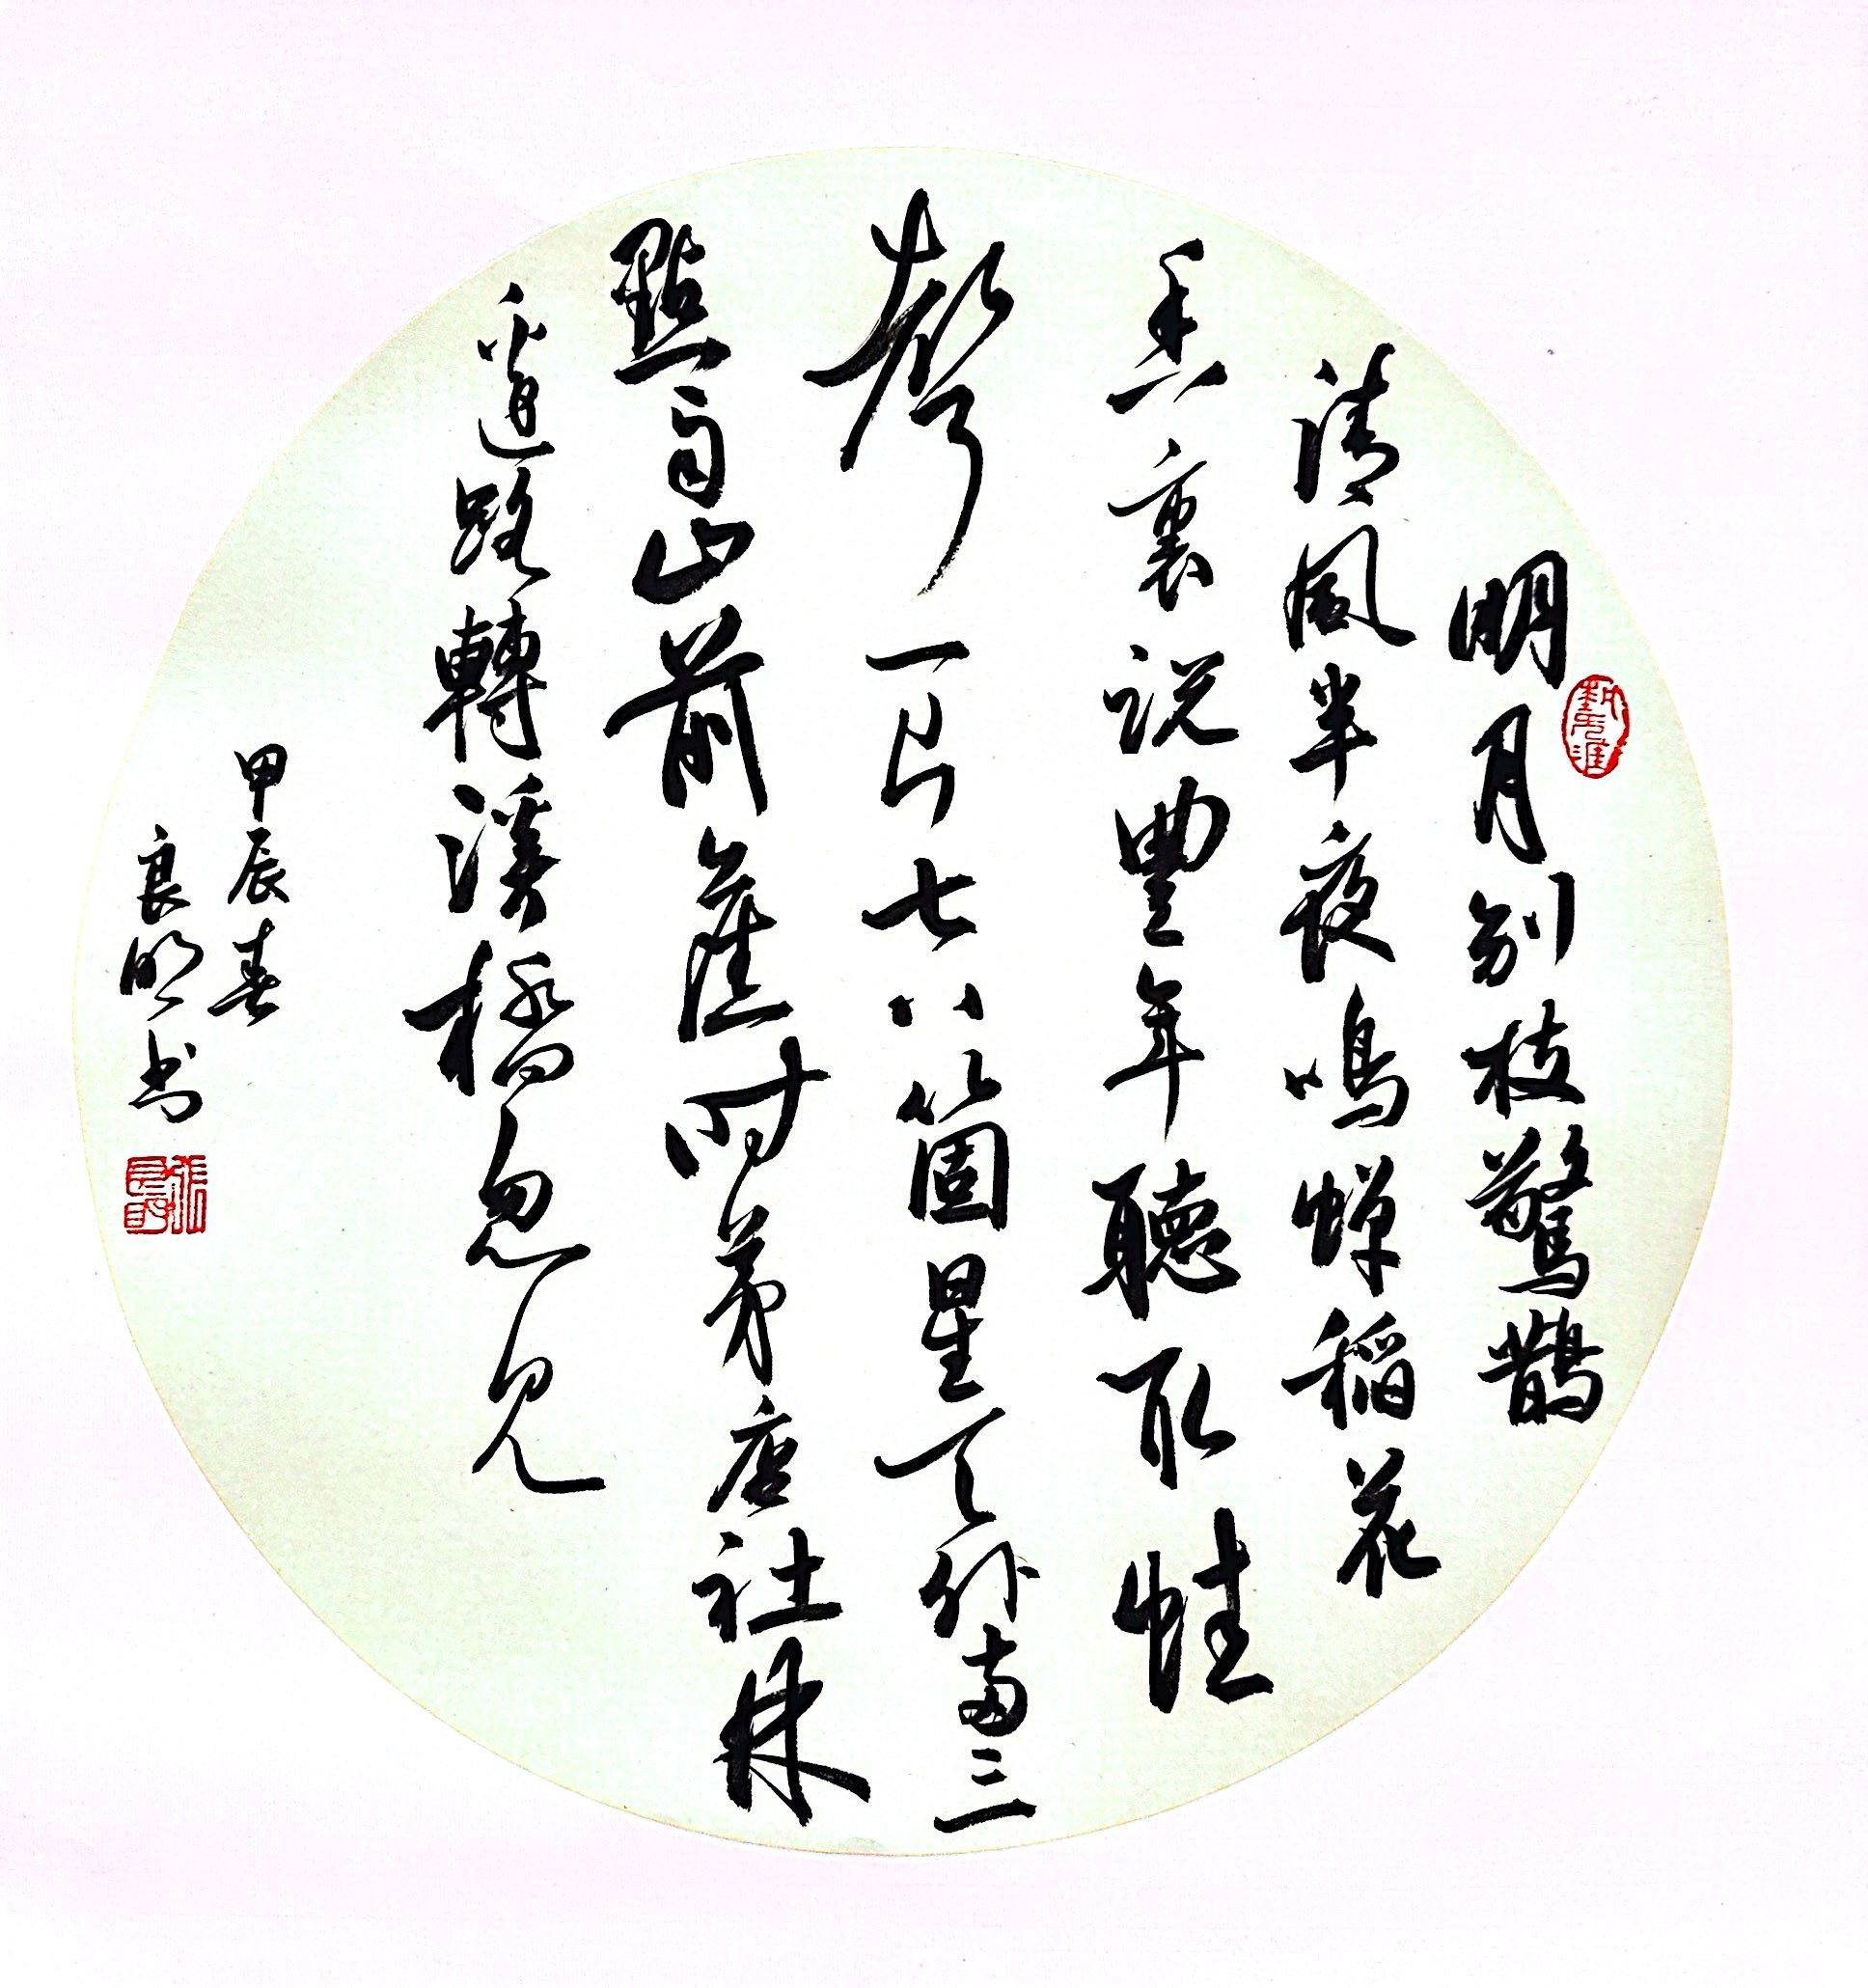 明月别枝驚鵲
清風半夜鳴蝉稻花
香裏説豐年聽取蛙
聲一片七八箇星天外兩三
點雨山前舊時茅店社林
邊路轉溪橋忽見
甲辰春
良明书
張良明